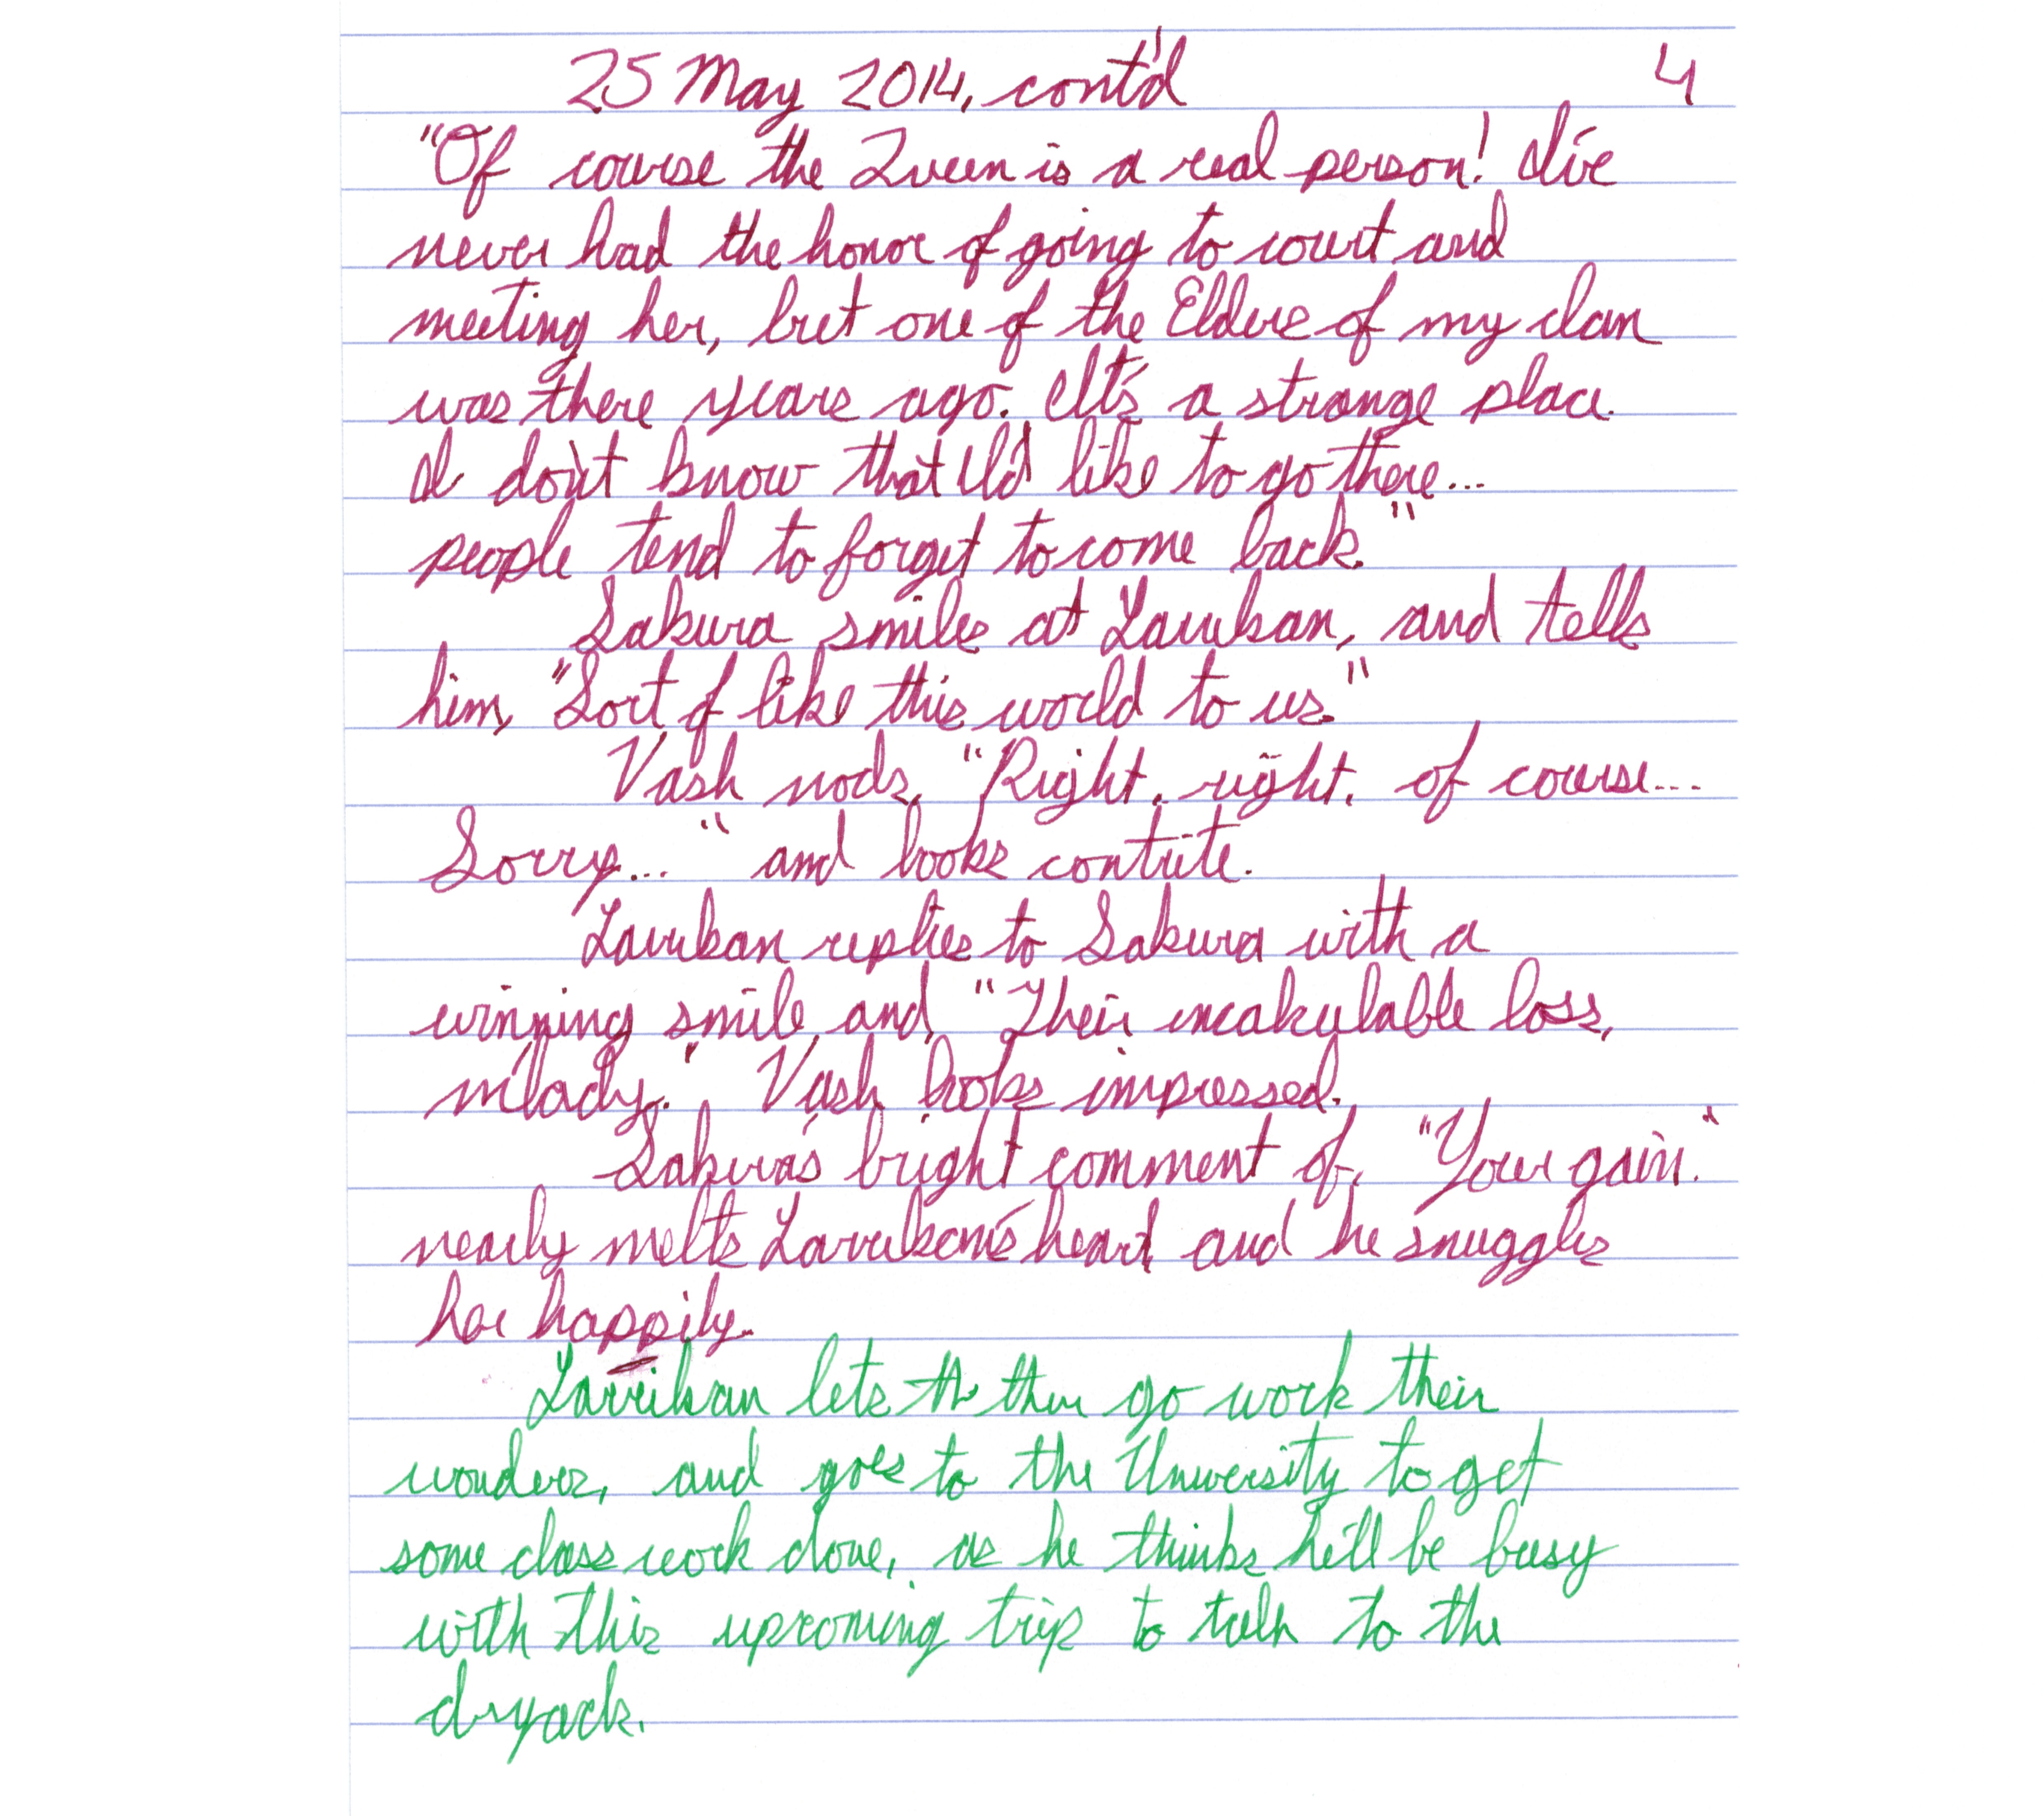 25 May 2014, cont'd 4
"Of course the Queen is a real person! I've
never had the honor of going to court and
meeting her, but one of the Elders of my clan
was there years ago. It's a strange place.
I don't know that I'd like to go there...
people tend to forget to come back."
Sakura smiles at Lavrikan, and tells
him, "Sort of like this world to us."
Vash nods, "Right, right, of course...
Sorry..." and looks contrite.
Lavrikan replies to Sakura with a
winning smile and, "Their incalculable loss,
m'lady." Vash looks impressed.
Sakura's bright comment of, "Your gain."
nearly melts Lavrikan's heart, and he snuggles
her happily.
Lavrikan lets th them go work their
wonders, and goes to the University to get
some class work done, as he thinks he'll be busy
with this upcoming trip to talk to the
dryads.